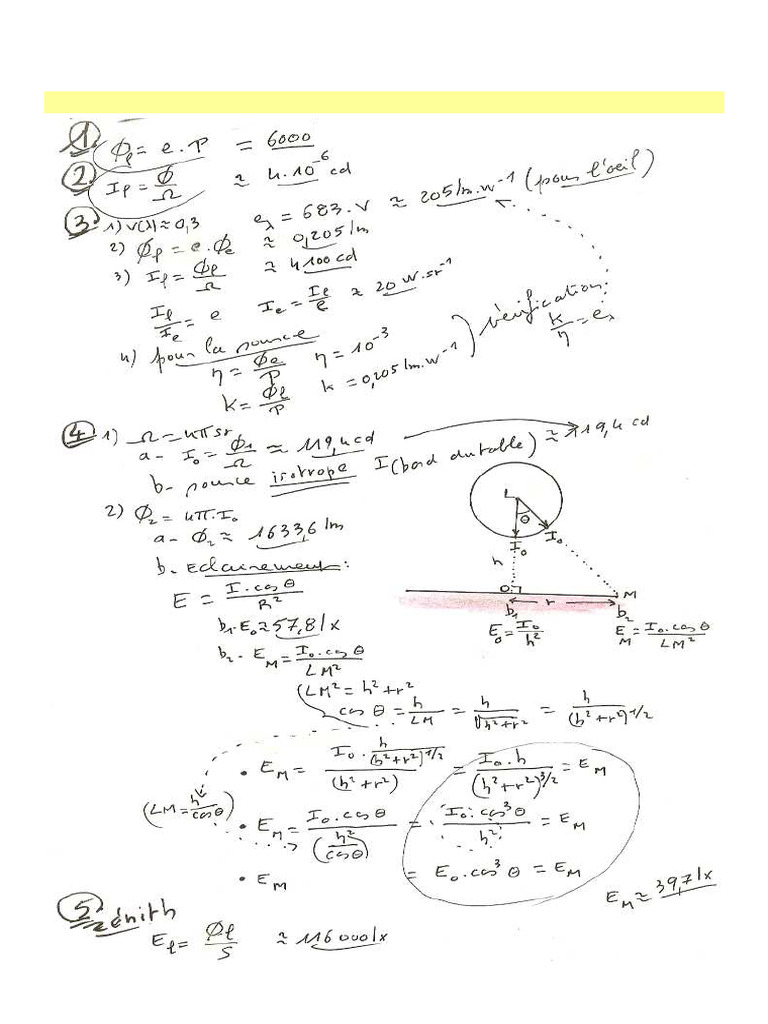 ① Φℓ = e.P = 6000
② Iℓ = Φ/Ω ≈ 4.10⁻⁶ cd
③ 1) V(λ) ≈ 0,3 eλ = 683.V ≈ 205 lm.W⁻¹ (pour l'oeil)
2) Φℓ = e.Φe ≈ 0,205 lm
3) Iℓ = Φℓ/Ω ≈ 4100 cd
Iℓ/Ie = e Ie = Iℓ/e ≈ 20 W.sr⁻¹
4) pour la source
η = Φe/P η = 10⁻³
k = Φℓ/P k = 0,205 lm.W⁻¹) vérification k/η = eλ
④ 1) Ω = 4π sr
a- I₀ = Φ₁/Ω ≈ 119,4 cd
b- source isotrope I (bord du table) ≈ 119,4 cd
2) Φ₂ = 4π.I₀
a- Φ₂ ≈ 1633,6 lm
b- Eclairement :
E = I.cos θ/R²
b₁- E₀ ≈ 57,8 lx
b₂- E_M = I₀.cos θ/LM²
L
θ
I₀ I₀
h
O r M
b₁ b₂
E₀ = I₀/h² E_M = I₀.cos θ/LM²
(LM² = h² + r²
cos θ = h/LM = h/√(h²+r²) = h/(h²+r²)^1/2
• E_M = I₀.h/(h²+r²)^1/2/(h²+r²) = I₀.h/(h²+r²)^3/2 = E_M
(LM = h/cos θ)
• E_M = I₀.cos θ/(h²/cos θ) = I₀.cos³ θ/h² = E_M
• E_M = E₀.cos³ θ = E_M
E_M ≈ 39,7 lx
⑤ Zénith
Eℓ = Φℓ/S ≈ 116000 lx